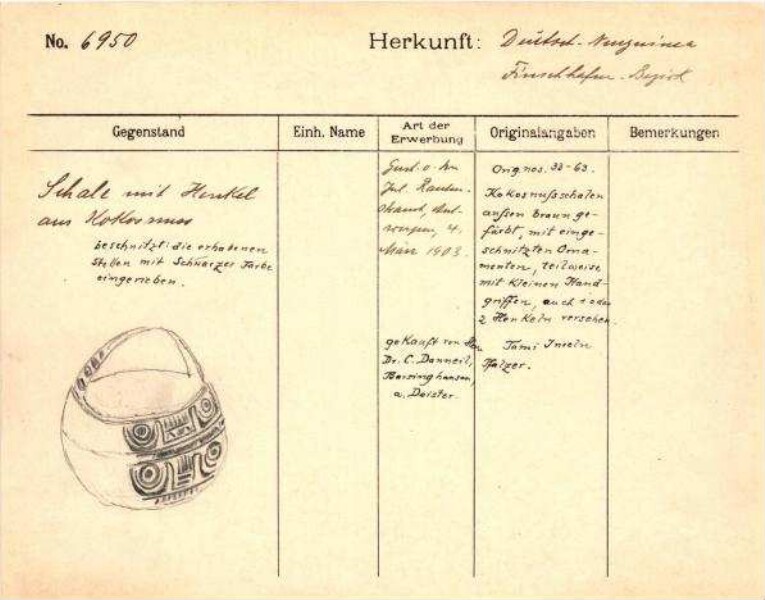 No. 6950
Herkunft: Deutsch-Neuguinea
Finschhafen-Bezirk
Gegenstand
Einh. Name
Art der
Erwerbung
Originalangaben
Bemerkungen
Schale mit Henkel
aus Kokosnuss
beschnitzt: die erhabenen
Stellen mit Schwarzer Farbe
eingerieben.
Jul. Rauten-
strauch, Ant-
werpen, 4.
März 1903.
gekauft von
Dr. C. Danneil,
Barsinghausen,
a. Deister.
Orig. nos. 33-63.
Kokosnußschalen
außen braun ge-
färbt, mit einge-
schnitzten Orna-
menten, teilweise
mit kleinen Hand-
griffen, auch 1 oder
2 Henkeln versehen.
Tami Inseln